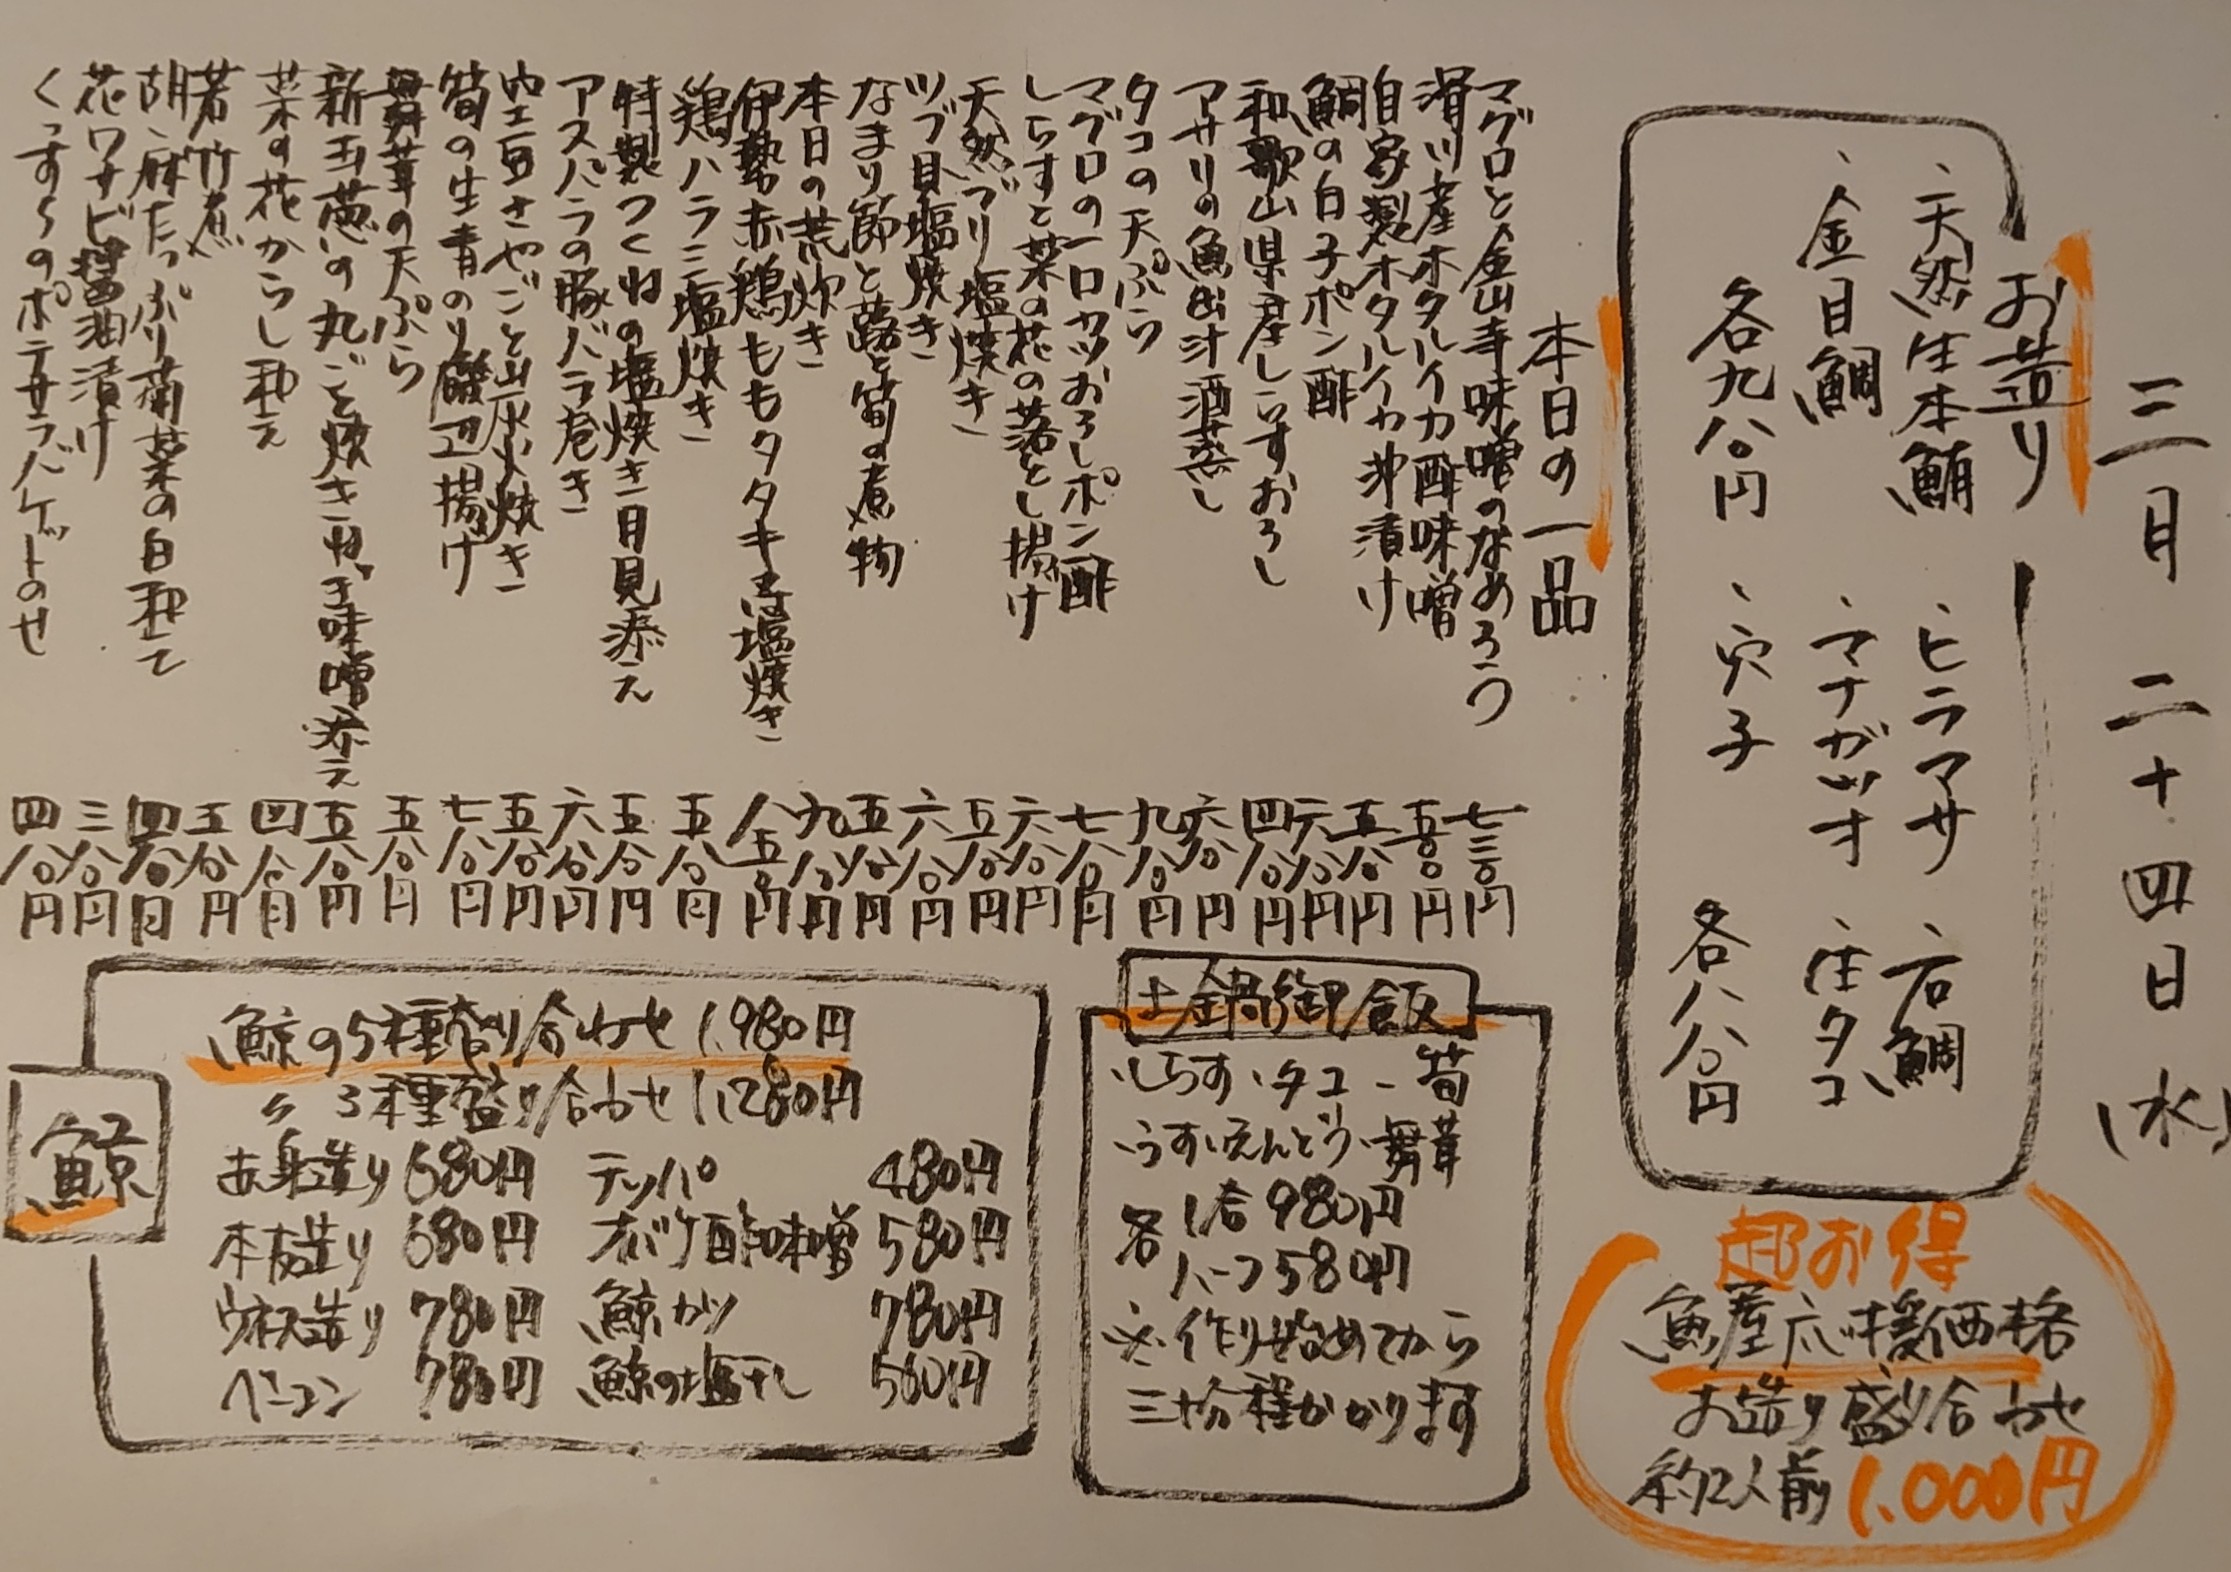 三月二十四日(水)
お造り
、天然生本鮪 、ヒラマサ 、石鯛
、金目鯛 、マナガツオ 、活タコ
各九八〇円 、穴子 各八八〇円
超お得
魚屋応援価格
お造り盛り合わせ
約2人前 1,000円
本日の一品
マグロと金山寺味噌のなめろう 七三〇円
滑川産ホタルイカ酢味噌 五八〇円
自家製ホタルイカ沖漬け 五八〇円
鯛の白子ポン酢 六八〇円
和歌山県産しらすおろし 四八〇円
アサリの魚出汁酒蒸し 六八〇円
タコの天ぷら 九八〇円
マグロの一口カツおろしポン酢 七八〇円
しらすと菜の花の落とし揚げ 六八〇円
天然ブリ塩焼き 五八〇円
ツブ貝塩焼き 六八〇円
なまり節と蕗と筍の煮物 五八〇円
本日の荒炊き 九八〇円
伊勢赤鶏ももタタキ又は塩焼き 八五〇円
鶏ハラミ塩焼き 五八〇円
特製つくねの塩焼き 月見添え 五八〇円
アスパラの豚バラ巻き 六八〇円
空豆さやごと山灰火焼き 五八〇円
筍の生青のり磯辺揚げ 七八〇円
舞茸の天ぷら 五八〇円
新玉葱の丸ごと焼き ねぎ味噌添え 五八〇円
菜の花からし和え 四八〇円
若竹煮 五八〇円
胡麻たっぷり菊菜の白和え 四八〇円
花ワサビ醤油漬け 三八〇円
くっすらのポテサラバケットのせ 四八〇円
土鍋御飯
・しらす・タコ・筍
・うすいえんどう・舞茸
各 1合 980円
ハーフ 580円
※作り始めてから
三十分程かかります
鯨
鯨の5種盛り合わせ 1,980円
〃 3種盛り合わせ 1,280円
赤身造り 680円 テッパ 480円
本皮造り 680円 オバケ酢味噌 580円
ウネス造り 780円 鯨カツ 780円
ベーコン 780円 鯨の塩干し 560円